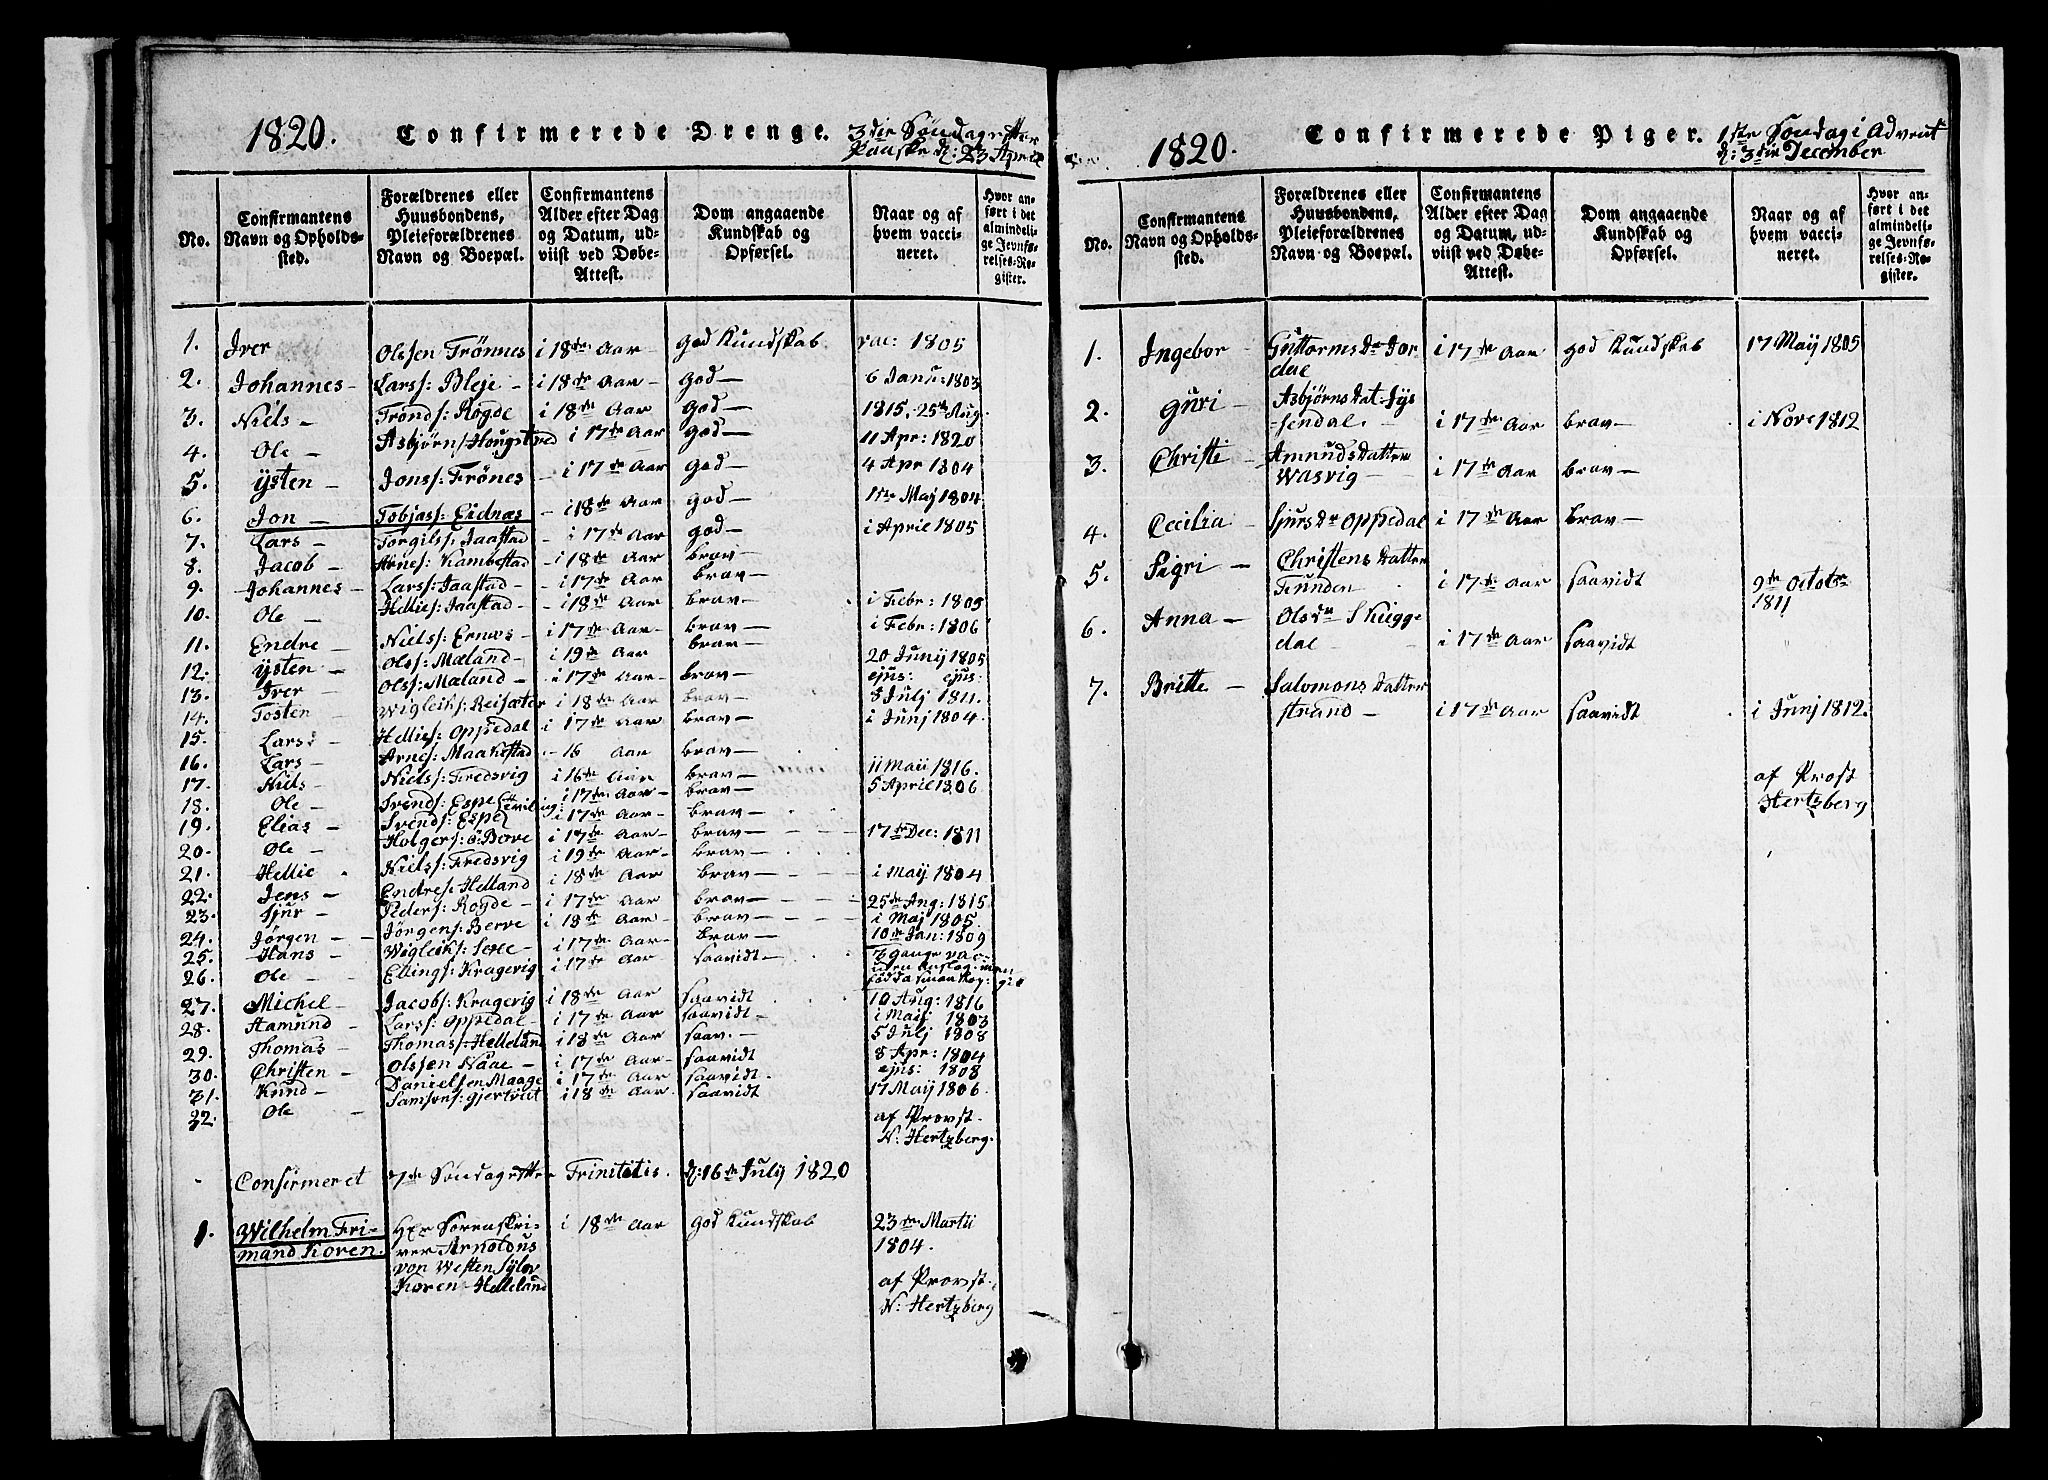 1820. Confirmerede Drenge. 3die Søndag efter
Paaske d: 23 April
No. Confirmantens Navn og Opholdssted. Forældrenes eller Huusbondens, Pleieforældrenes Navn og Boepæl. Confirmantens Alder efter Dag og Datum, udviist ved Døbe-Attest. Dom angaaende Kundskab og Opførsel. Naar og af hvem vaccineret. Hvor anført i det almindelige Jevnførelses-Register.
1. Iver Olssen Trønnes i 18de Aar god Kundskab vac: 1805
2. Johannes - Larss: Bleje - i 18de Aar - god - 6 Janu: 1803
3. Niels - Tronds: Rogde i 18de Aar god - 1815. 25de Aug.
4. Ole - Asbjørns: Hougstad i 17de Aar god - 11 Apr: 1820
5. Ysten - Jonss: Trönes - i 17de Aar god - 4 Apr 1804
6. Jon - Tobjass: Eidnæs - i 18de Aar god - 1ste May 1804
7. Lars - Torgilss: Jaastad - i 17de Aar god - i April 1805
8. Jacob - Arnes: Kambestad - i 18de Aar brav -
9. Johannes - Larss: Jaastad - - i 17de Aar brav -
10. Ole - Hellies: Jaastad - - i 18de Aar brav - i Febr: 1805
11. Endre - Nielss: Ernæs - i 17de Aar - brav - i Febr: 1806
12. Ysten - Olss: Mæland - i 19de Aar brav - 20 Junij 1805
13. Iver - Olss: Mæland - i 17de Aar - brav - ejus: ejus:
14. Tosten - Wigleiks: Reisæter i 18de Aar brav - 8 Julj 1811.
15. Lars - Hellies: Oppedal i 17de Aar brav - i Junj 1804.
16. Lars - Arnes: Maakestad - 16 Aar brav -
17. Niels - Nielss: Fredsvig i 16de Aar brav - 11 Maii 1816.
18. Ole - Svends: Espe i 17de Aar - brav - 5 April 1806
19. Elias - Svends: Espe i 17de Aar - brav -
20. Ole - Holgers: Bove i 17de Aar - brav - 17de Dec: 1811
21. Hellie Nielss: Fredsvig i 19de Aar - brav -
22. Jens - Endres: Helland i 18de Aar brav - i Maij 1804
23. Sjur - Peders: Rogde - i 17de Aar brav - 25de Aug: 1815
24. Jørgen - Jørgens: Berve i 18de Aar brav - i Maj 1805
25. Hans - Wigleiks: - i 17de Aar - brav - 10de Jan: 1809
26. Ole - Ellings: Kragevig i 17de Aar saavidt 3 gange vac:
uden
27. Michel - Jacobs: Kragevig i 18de Aar saavidt 10 Aug: 1816
28. Aamund - Larss: Oppedal - i 17de Aar saavidt - i Maij 1803
29. Thomas - Thomass: Helleland i 18de Aar saav. - 5 Julj 1808
30. Christen - Olssen Naae - i 17de Aar - saavidt 8 Apr: 1804
31. Knud - Danielsen Maage i 17de Aar saavidt. ejus: 1808
32. Ole - Samsons: Gjertveit i 18de Aar saavidt 17 Maij 1806.
af Provst.
N: Hertzberg.
Confirmeret 7de Søndag efter Trinitatis. d: 16de Julij 1820
1. Wilhelm Fri- Hr Sorenskri- i 18de Aar god Kundskab 23de Martii
mand Koren. ver Arnoldus 1804.
von Westen Sylov
Koren - Helleland af Provst.
N: Hertzberg
1820. Confirmerede Piger. 1ste Søndag i Advent
d: 3die December
No. Confirmantens Navn og Opholdssted. Forældrenes eller Huusbondens, Pleieforældrenes Navn og Boepæl. Confirmantens Alder efter Dag og Datum, udviist ved Døbe-Attest. Dom angaaende Kundskab og Opførsel. Naar og af hvem vaccineret. Hvor anført i det almindelige Jevnførelses-Register.
1. Ingebor - Guttorms Dr Jor- i 17de Aar god Kundskab 17 Maij 1805
dal
2. Guri - Asbjørns Dat: Sys-
sendal. - i 17de Aar brav - i Nove 1812
3. Christi - Amunds Datter
Wasvig - i 17de Aar brav -
4. Cecilia - Sjurs Dr Oppedal i 17de Aar brav -
5. Sigri - Christens Datter
Frunden i 17de Aar saavidt 9de Octobr
1811
6. Anna - Ols dr Skugge
dal - i 17de Aar saavidt
7. Britte - Salomons Datter
strand - i 17de Aar saavidt i Junj 1812.
af Prost
Hertzberg